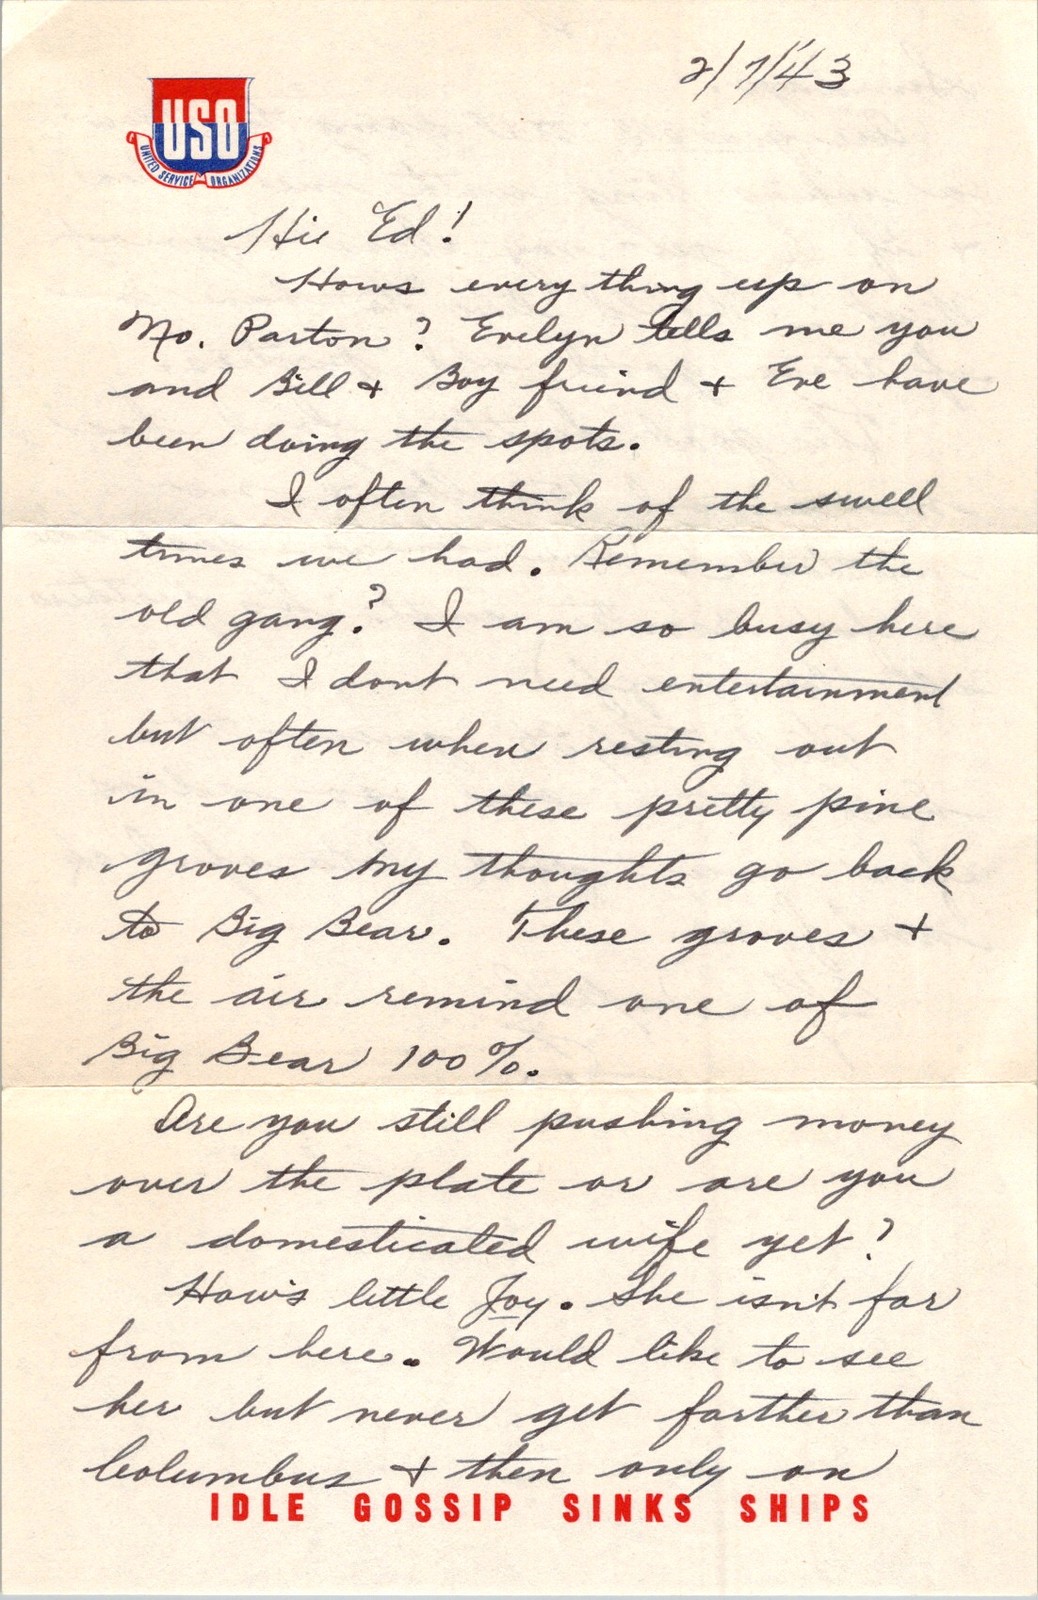 2/7/43
USO
UNITED SERVICE ORGANIZATIONS
Hie Ed!
Hows every thing up on
No. Parton? Evelyn tells me you
and Bill + Boy friend + Eve have
been doing the spots.
I often think of the swell
times we had. Remember the
old gang? I am so busy here
that I dont need entertainment
but often when resting out
in one of these pretty pine
groves my thoughts go back
to Big Bear. These groves +
the air remind one of
Big Bear 100%.
Are you still pushing money
over the plate or are you
a domesticated wife yet?
How's little Joy. She isn't far
from here. Would like to see
her but never get farther than
Columbus + then only on
IDLE GOSSIP SINKS SHIPS